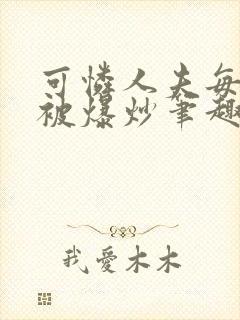 可憐人夫每
被爆炒筆趣
我愛木木